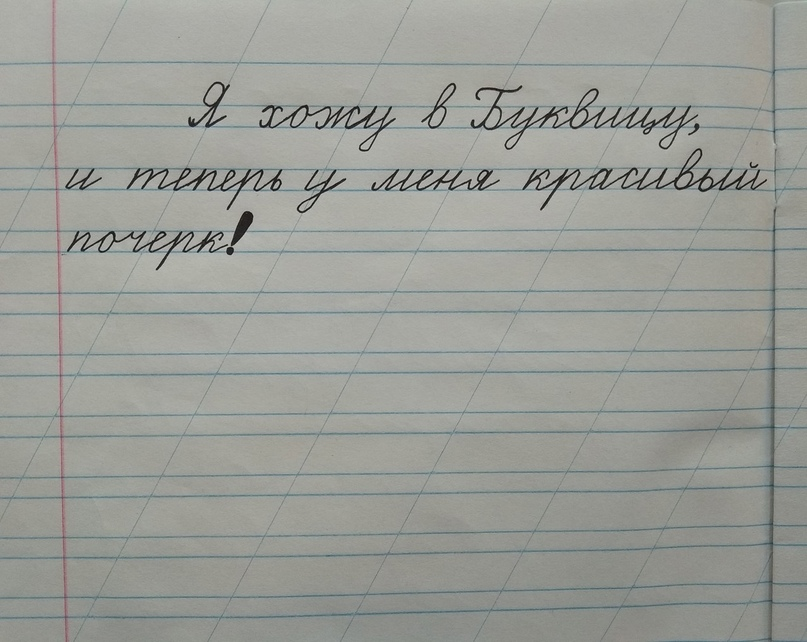 Я хожу в Буквицу,
и теперь у меня красивый
почерк!